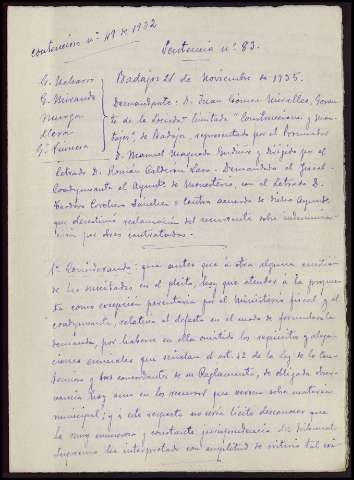 contencioso nº 49 de 1932
Sentencia nº 83.
G. Navarro
G. Miranda
Murga
Lera
Gª Quincea
Badajoz 21 de Noviembre de 1935.
Demandante: D. Juan Gómez Miralles, Geren-
te de la Sociedad limitada "Construcciones y Mon-
tajes", de Badajoz, representado por el Procurador
D. Manuel Maqueda y dirigido por el
letrado D. Román Calderón Lara. Demandado el Fiscal.
Coadyuvante el Ayuntº de Monesterio, con el Letrado D.
Teodoro Sánchez = Contra acuerdo de dicho Ayuntº
que desestimó reclamación del recurrente sobre indemniza-
ción por obras contratadas.
1º Considerando: que antes que a otra alguna cuestión
de las suscitadas en el pleito, hay que atender a la propues-
ta como excepción perentoria por el Ministerio fiscal y el
coadyuvante, relativa al defecto en el modo de formular la
demanda, por haberse en ella omitido los requisitos y alega-
ciones esenciales que señalan el artº 42 de la ley de lo Con-
tencioso y sus concordantes de su Reglamento, de obligada obser-
vancia hoy aun en los recursos que versen sobre materia
municipal; y a este respecto no sería lícito desconocer que
la muy numerosa y constante jurisprudencia del Tribunal
Supremo ha interpretado con amplitud de criterio tal exi-